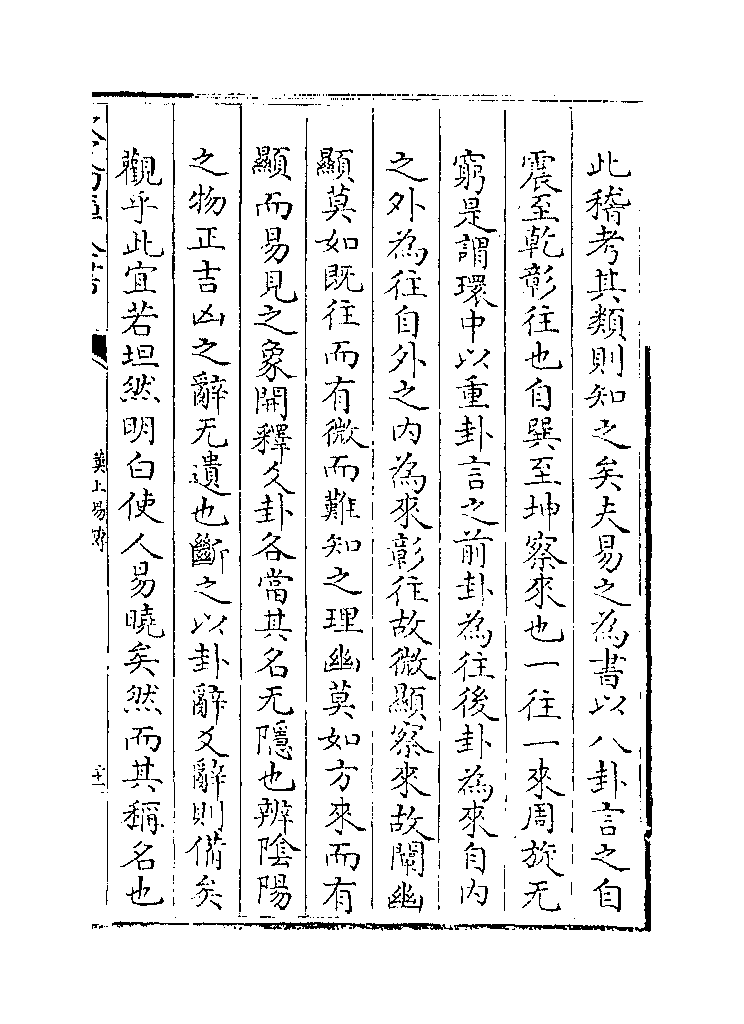 此稽考其類則知之矣夫易之為書以八卦言之自
震至乾彰往也自巽至坤察來也一往一來周旋无
窮是謂環中以重卦言之前卦為往後卦為來自内
之外為往自外之内為來彰往故微顯察來故闡幽
顯莫如既往而有微而難知之理幽莫如方來而有
顯而易見之象開釋爻卦各當其名无隱也辨陰陽
之物正吉凶之辭无遺也斷之以卦辭爻辭則備矣
觀乎此宜若坦然明白使人易曉矣然而其稱名也
漢上易傳